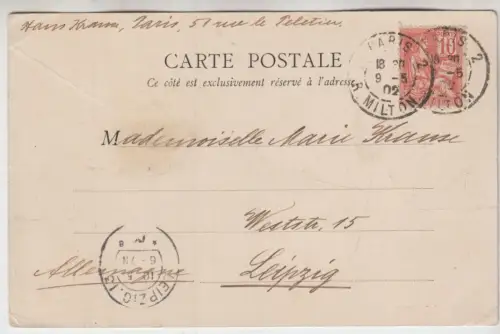 Hans Krause, Paris, 51 rue le Peletier
CARTE POSTALE
Ce côté est exclusivement réservé à l'adresse
PARIS 2
18 30
9 - 5
02
R. MILTON
10
Mademoiselle Marie Krause
Weststr. 15
Leipzig
Allemagne
LEIPZIG. 13